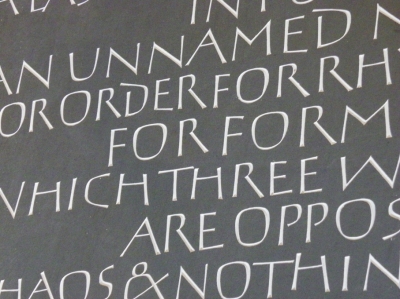 INTO
AN UNNAMED
OR ORDER FOR RH
FOR FORM
WHICH THREE W
ARE OPPOS
CHAOS & NOTHIN